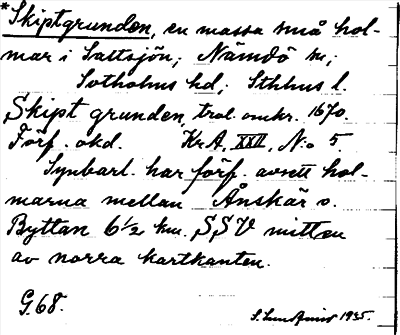 *Skiptgrunden, en massa små hol-
mar i Saltsjön; Nämdö sn;
Sotholms hd; Sthlms l.
Skipt grunden, trol. omkr. 1670.
Förf. okd. KrA, XXII, N:o 5.
Synbarl. har förf. avsett hol-
marna mellan Ånskär o.
Byttan 6 1/2 km. SSV mitten
av norra kartkanten.
G.68.
S. Lundqvist 1935.